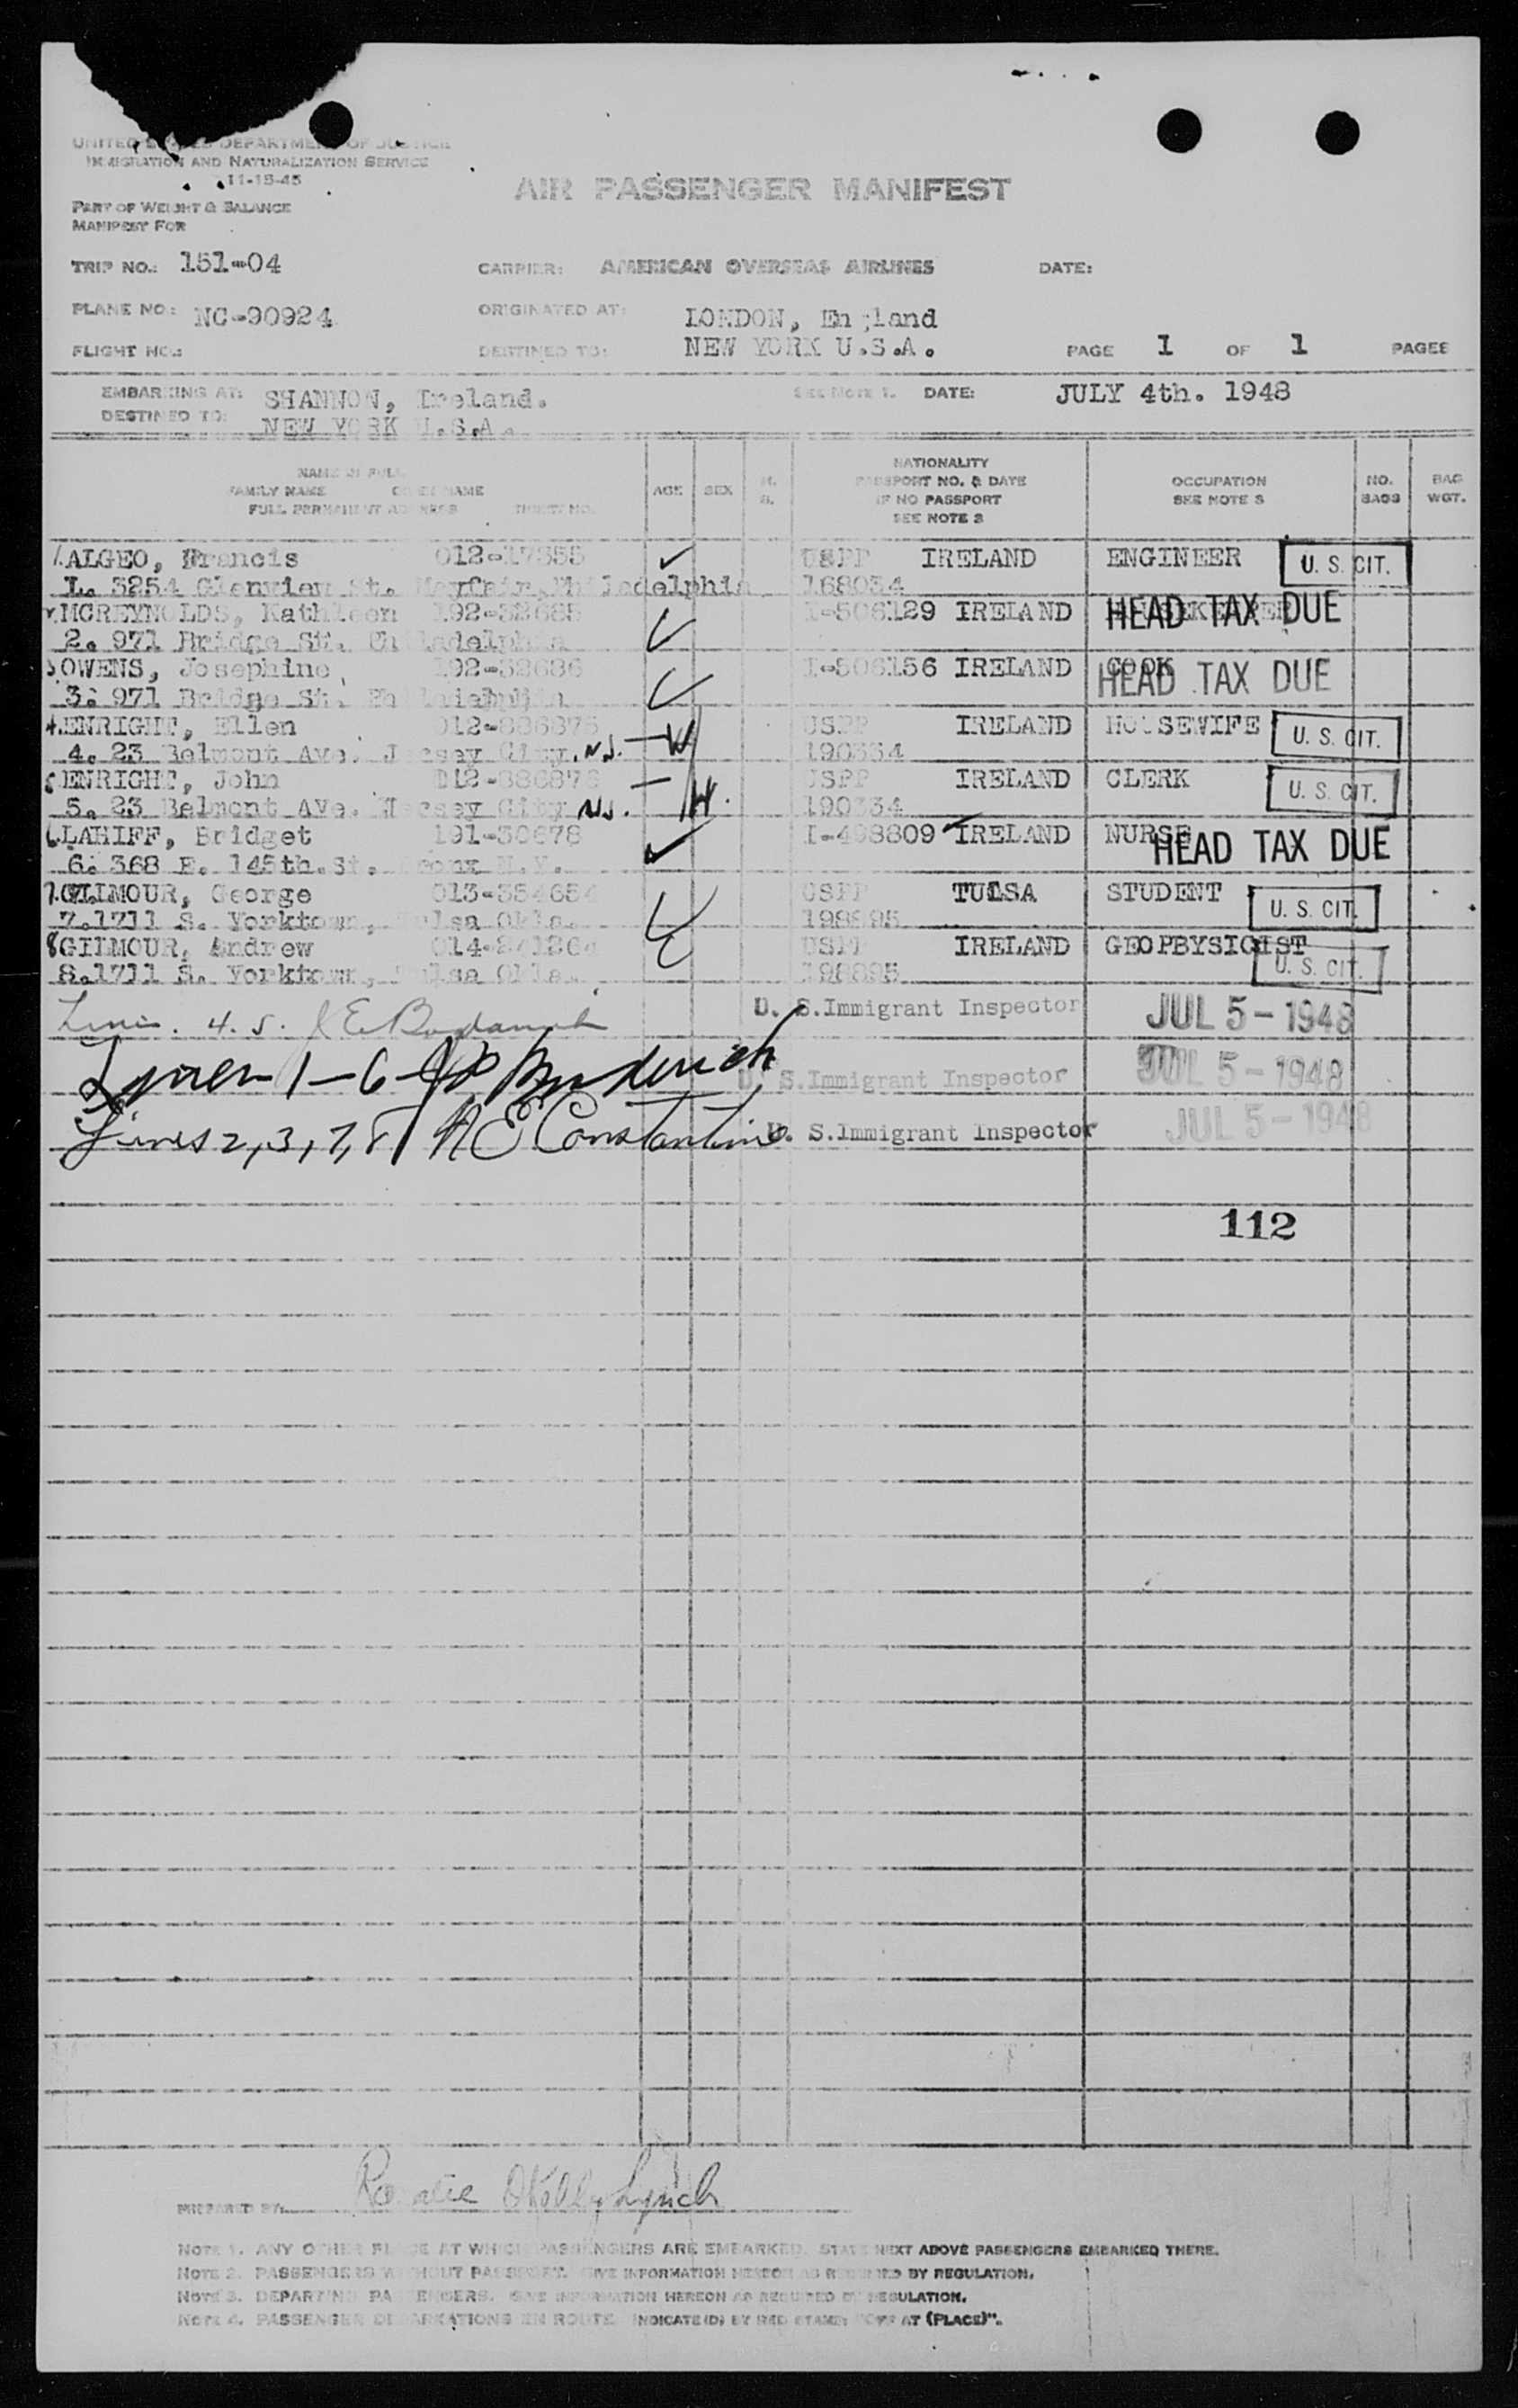 UNITED STATES DEPARTMENT OF JUSTICE
IMMIGRATION AND NATURALIZATION SERVICE
11-15-45
AIR PASSENGER MANIFEST
PART OF WEIGHT & BALANCE
MANIFEST FOR
TRIP NO.: 151-04 CARRIER: AMERICAN OVERSEAS AIRLINES DATE:
PLANE NO: NC-90924 ORIGINATED AT: LONDON, England
FLIGHT NO.: DESTINED TO: NEW YORK U.S.A. PAGE 1 OF 1 PAGES
EMBARKING AT: SHANNON, Ireland. SEE NOTE 1. DATE: JULY 4th. 1948
DESTINED TO: NEW YORK U.S.A.
NAME IN FULL
FAMILY NAME GIVEN NAME
FULL PERMANENT ADDRESS TICKET NO.
AGE SEX
NATIONALITY
PASSPORT NO. & DATE
IF NO PASSPORT
SEE NOTE 2
OCCUPATION
SEE NOTE 3
NO.
BAGS
BAG
WGT.
1. ALGEO, Francis 012-17355 USPP IRELAND ENGINEER U. S. CIT.
1. 3254 Glenview St. Mayfair, Philadelphia 168034
MCREYNOLDS, Kathleen 192-32685 I-506129 IRELAND HEAD TAX DUE
2. 971 Bridge St. Philadelphia
3 OWENS, Josephine, 192-32686 I-506156 IRELAND COOK HEAD TAX DUE
3. 971 Bridge St. Philadelphia
4. ENRIGHT, Ellen 012-886875 USPP IRELAND HOUSEWIFE U. S. CIT.
4. 23 Belmont Ave. Jersey City, N.J. — W 190334
5 ENRIGHT, John 012-886876 USPP IRELAND CLERK U. S. CIT.
5. 23 Belmont Ave. Jersey City N.J. — H. 190334
6. LAHIFF, Bridget 191-30678 I-498809 IRELAND NURSE HEAD TAX DUE
6. 368 E. 145th. St. Bronx N.Y.
7. GILMOUR, George 013-354654 USPP TULSA STUDENT U. S. CIT.
7. 1711 S. Yorktown, Tulsa Okla. 198895
8 GILMOUR, Andrew USPP IRELAND GEOPBYSICIST U. S. CIT.
8. 1711 S. Yorktown, Tulsa Okla. 198895
4. 5. U. S. Immigrant Inspector JUL 5 - 1948
1 - 6 U. S. Immigrant Inspector JUL 5 - 1948
Lines 2, 3, 7, 8 N E Constantine U. S. Immigrant Inspector JUL 5 - 1948
112
PREPARED BY: Rosalie O'Kelly Lynch
NOTE 1. ANY OTHER PLACE AT WHICH PASSENGERS ARE EMBARKED, STATE NEXT ABOVE PASSENGERS EMBARKED THERE.
NOTE 2. PASSENGERS WITHOUT PASSPORT. GIVE INFORMATION HEREON AS REQUIRED BY REGULATION.
NOTE 3. DEPARTING PASSENGERS. GIVE INFORMATION HEREON AS REQUIRED BY REGULATION.
NOTE 4. PASSENGER DEBARKATIONS EN ROUTE INDICATE(D) BY RED STAMP: "OFF AT (PLACE)".